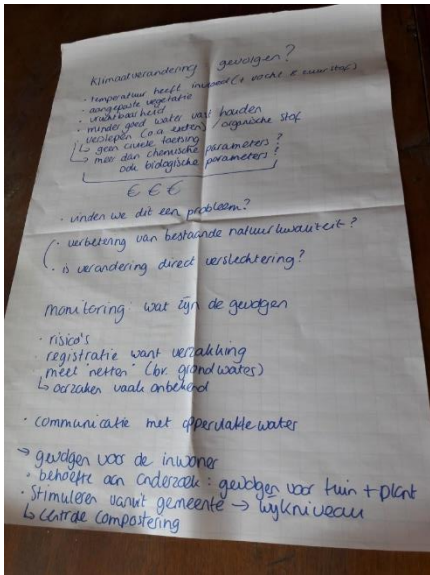 Klimaatverandering gevolgen?
· temperatuur heeft invloed (+ vocht & zuurstof)
· aangepaste vegetatie
· vruchtbaarheid
· minder goed water vast houden
verslepen (o.a. exoten) / organische stof
↳ geen civiele toetsing
↳ meer dan chemische parameters?
ook biologische parameters?
€ € €
· vinden we dit een probleem?
· verbetering van bestaande natuurkwaliteit?
· is verandering direct verslechtering?
monitoring wat zijn de gevolgen
· risico's
· registratie want verzakking
meet "netten" (bv. grondwater)
↳ oorzaken vaak onbekend
· communicatie met oppervlaktewater
→ gevolgen voor de inwoner
· behoefte aan onderzoek: gevolgen voor tuin + plant
· stimuleren vanuit gemeente → wijkniveau
↳ centrale compostering